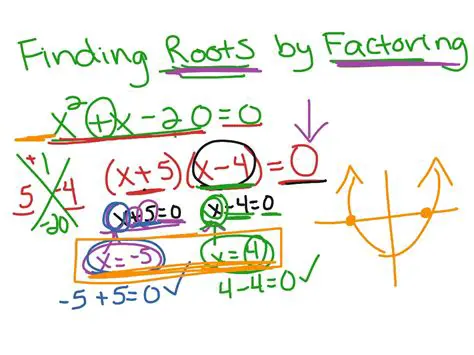 Finding Roots by Factoring
x² + x - 20 = 0
+1
5 -4
-20
(x+5)(x-4) = 0
x+5=0 x-4=0
x=-5 x=4
-5+5=0✓ 4-4=0✓